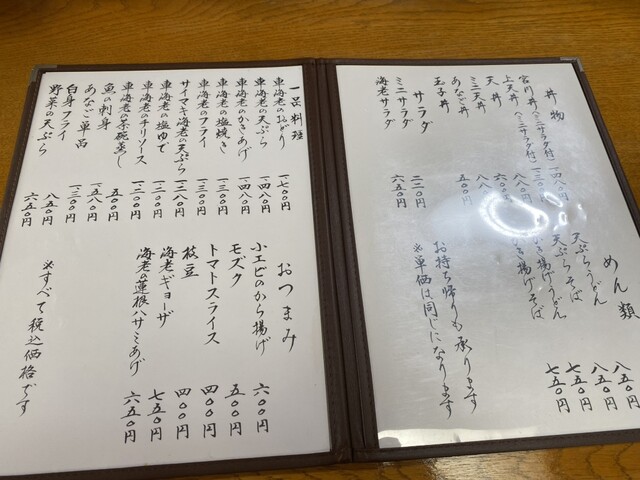 丼物
宮川丼(ミニサラダ付) 一四八〇円
上天丼(ミニサラダ付) 一三〇〇円
天丼 八八〇円
ミニ天丼
あなご丼
玉子丼 五〇〇円
サラダ
ミニサラダ 二二〇円
海老サラダ
めん類
天ぷらうどん 八五〇円
天ぷらそば 八五〇円
かき揚げうどん 七五〇円
かき揚げそば 七五〇円
お持ち帰りも承ります
※単価は同じになります
一品料理
車海老のおどり 一七〇〇円
車海老の天ぷら 一四八〇円
車海老のかきあげ 一四八〇円
車海老の塩焼き 一三〇〇円
車海老のフライ 一三〇〇円
サイマキ海老の天ぷら 一二八〇円
車海老のチリソース 一二〇〇円
車海老の塩ゆで 一二〇〇円
車海老の茶碗蒸し 五〇〇円
魚の刺身 一五八〇円
あなご単品 一三〇〇円
白身フライ 八五〇円
野菜の天ぷら 六五〇円
おつまみ
小エビのから揚げ 六〇〇円
モズク 五〇〇円
トマトスライス 四〇〇円
枝豆 四〇〇円
海老ギョーザ 七五〇円
海老の蓮根ハサミあげ 六五〇円
※すべて税込価格です